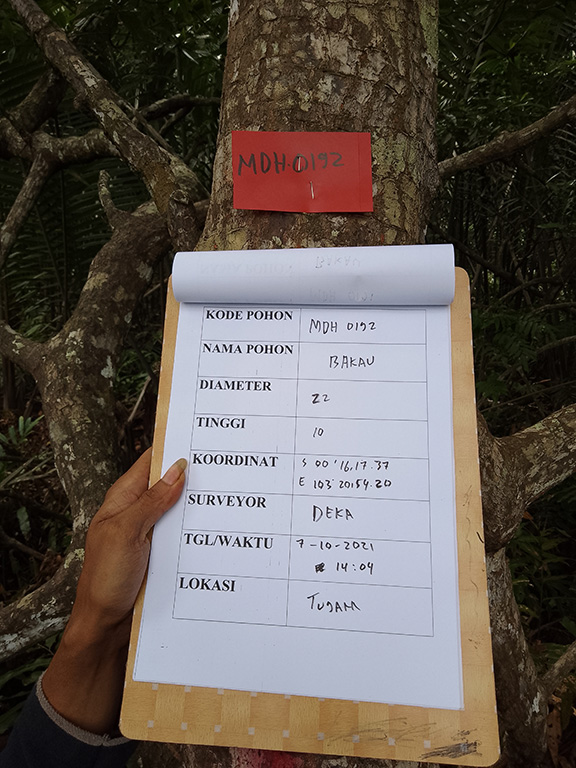 MDH.0192
KODE POHON MDH 0192
NAMA POHON BAKAU
DIAMETER 22
TINGGI 10
KOORDINAT S 00°16.17.37
E 103°20.54.20
SURVEYOR DEKA
TGL/WAKTU 7-10-2021
14:04
LOKASI TUJAM